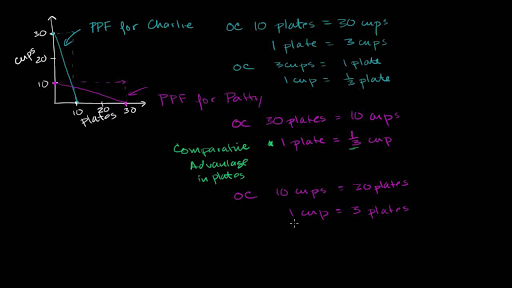 PPF for Charlie
30
cups
20
10
10 20 30
plates
OC 10 plates = 30 cups
1 plate = 3 cups
OC 3 cups = 1 plate
1 cup = 1/3 plate
PPF for Patty
OC 30 plates = 10 cups
1 plate = 1/3 cup
Comparative
Advantage
in plates
OC 10 cups = 30 plates
1 cup = 3 plates